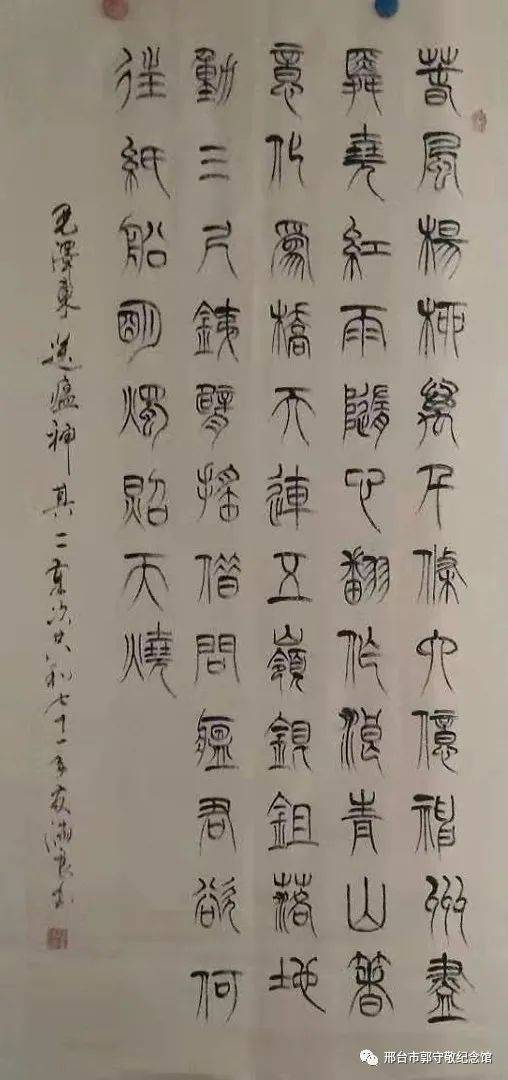 春風楊柳萬千條六億神州盡
舜堯紅雨隨心翻作浪青山箸
意化為橋天連五嶺銀鉏落地
動三尺銕臂搖借問瘟君欲何
往紙船明燭照天燒
毛澤東 送瘟神 其二 共和七十一年 書
邢台市郭守敬纪念馆